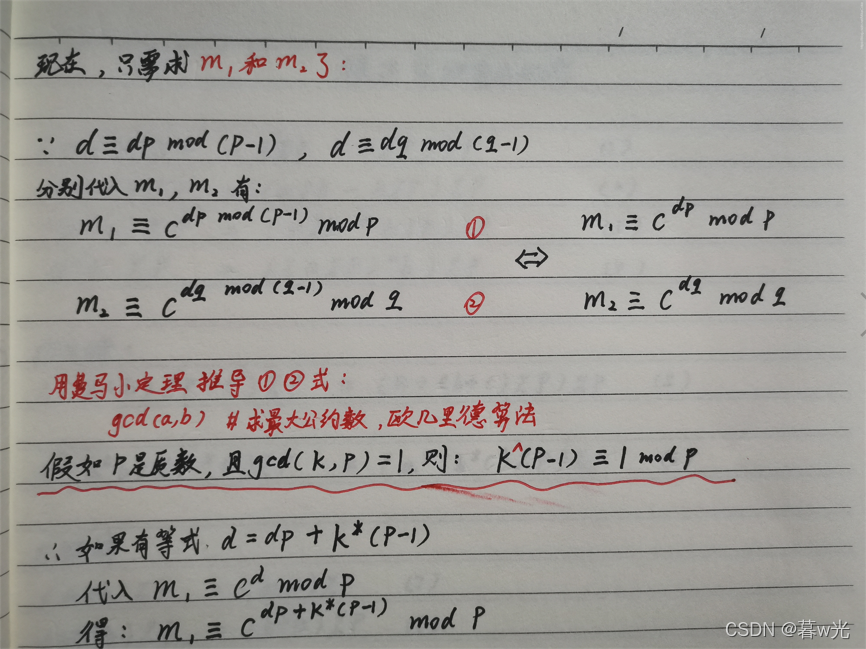 现在，只需求 m₁ 和 m₂ 了：
∵ d ≡ dp mod (P-1) , d ≡ dq mod (q-1)
分别代入 m₁, m₂ 有：
m₁ ≡ C^dp mod (P-1) mod P ① m₁ ≡ C^dp mod P
⇔
m₂ ≡ C^dq mod (q-1) mod q ② m₂ ≡ C^dq mod q
用费马小定理 推导 ① ② 式：
gcd(a,b) #求最大公约数，欧几里德算法
假如 P是质数，且gcd(k,p)=1，则： K^(P-1) ≡ 1 mod P
∴ 如果有等式. d = dp + k*(P-1)
代入 m₁ ≡ C^d mod P
得： m₁ ≡ C^dp+k*(P-1) mod P
CSDN @暮w光